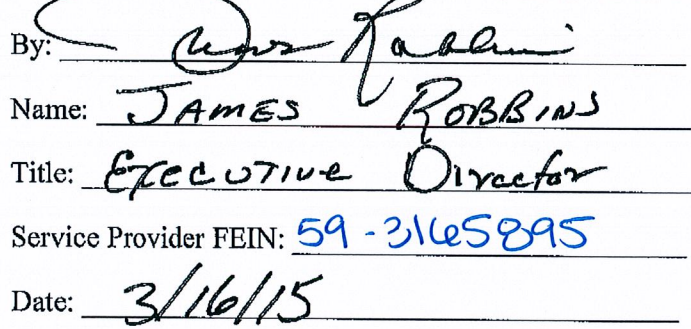 By: James Robbins
Name: JAMES ROBBINS
Title: EXECUTIVE Director
Service Provider FEIN: 59-3165895
Date: 3/16/15